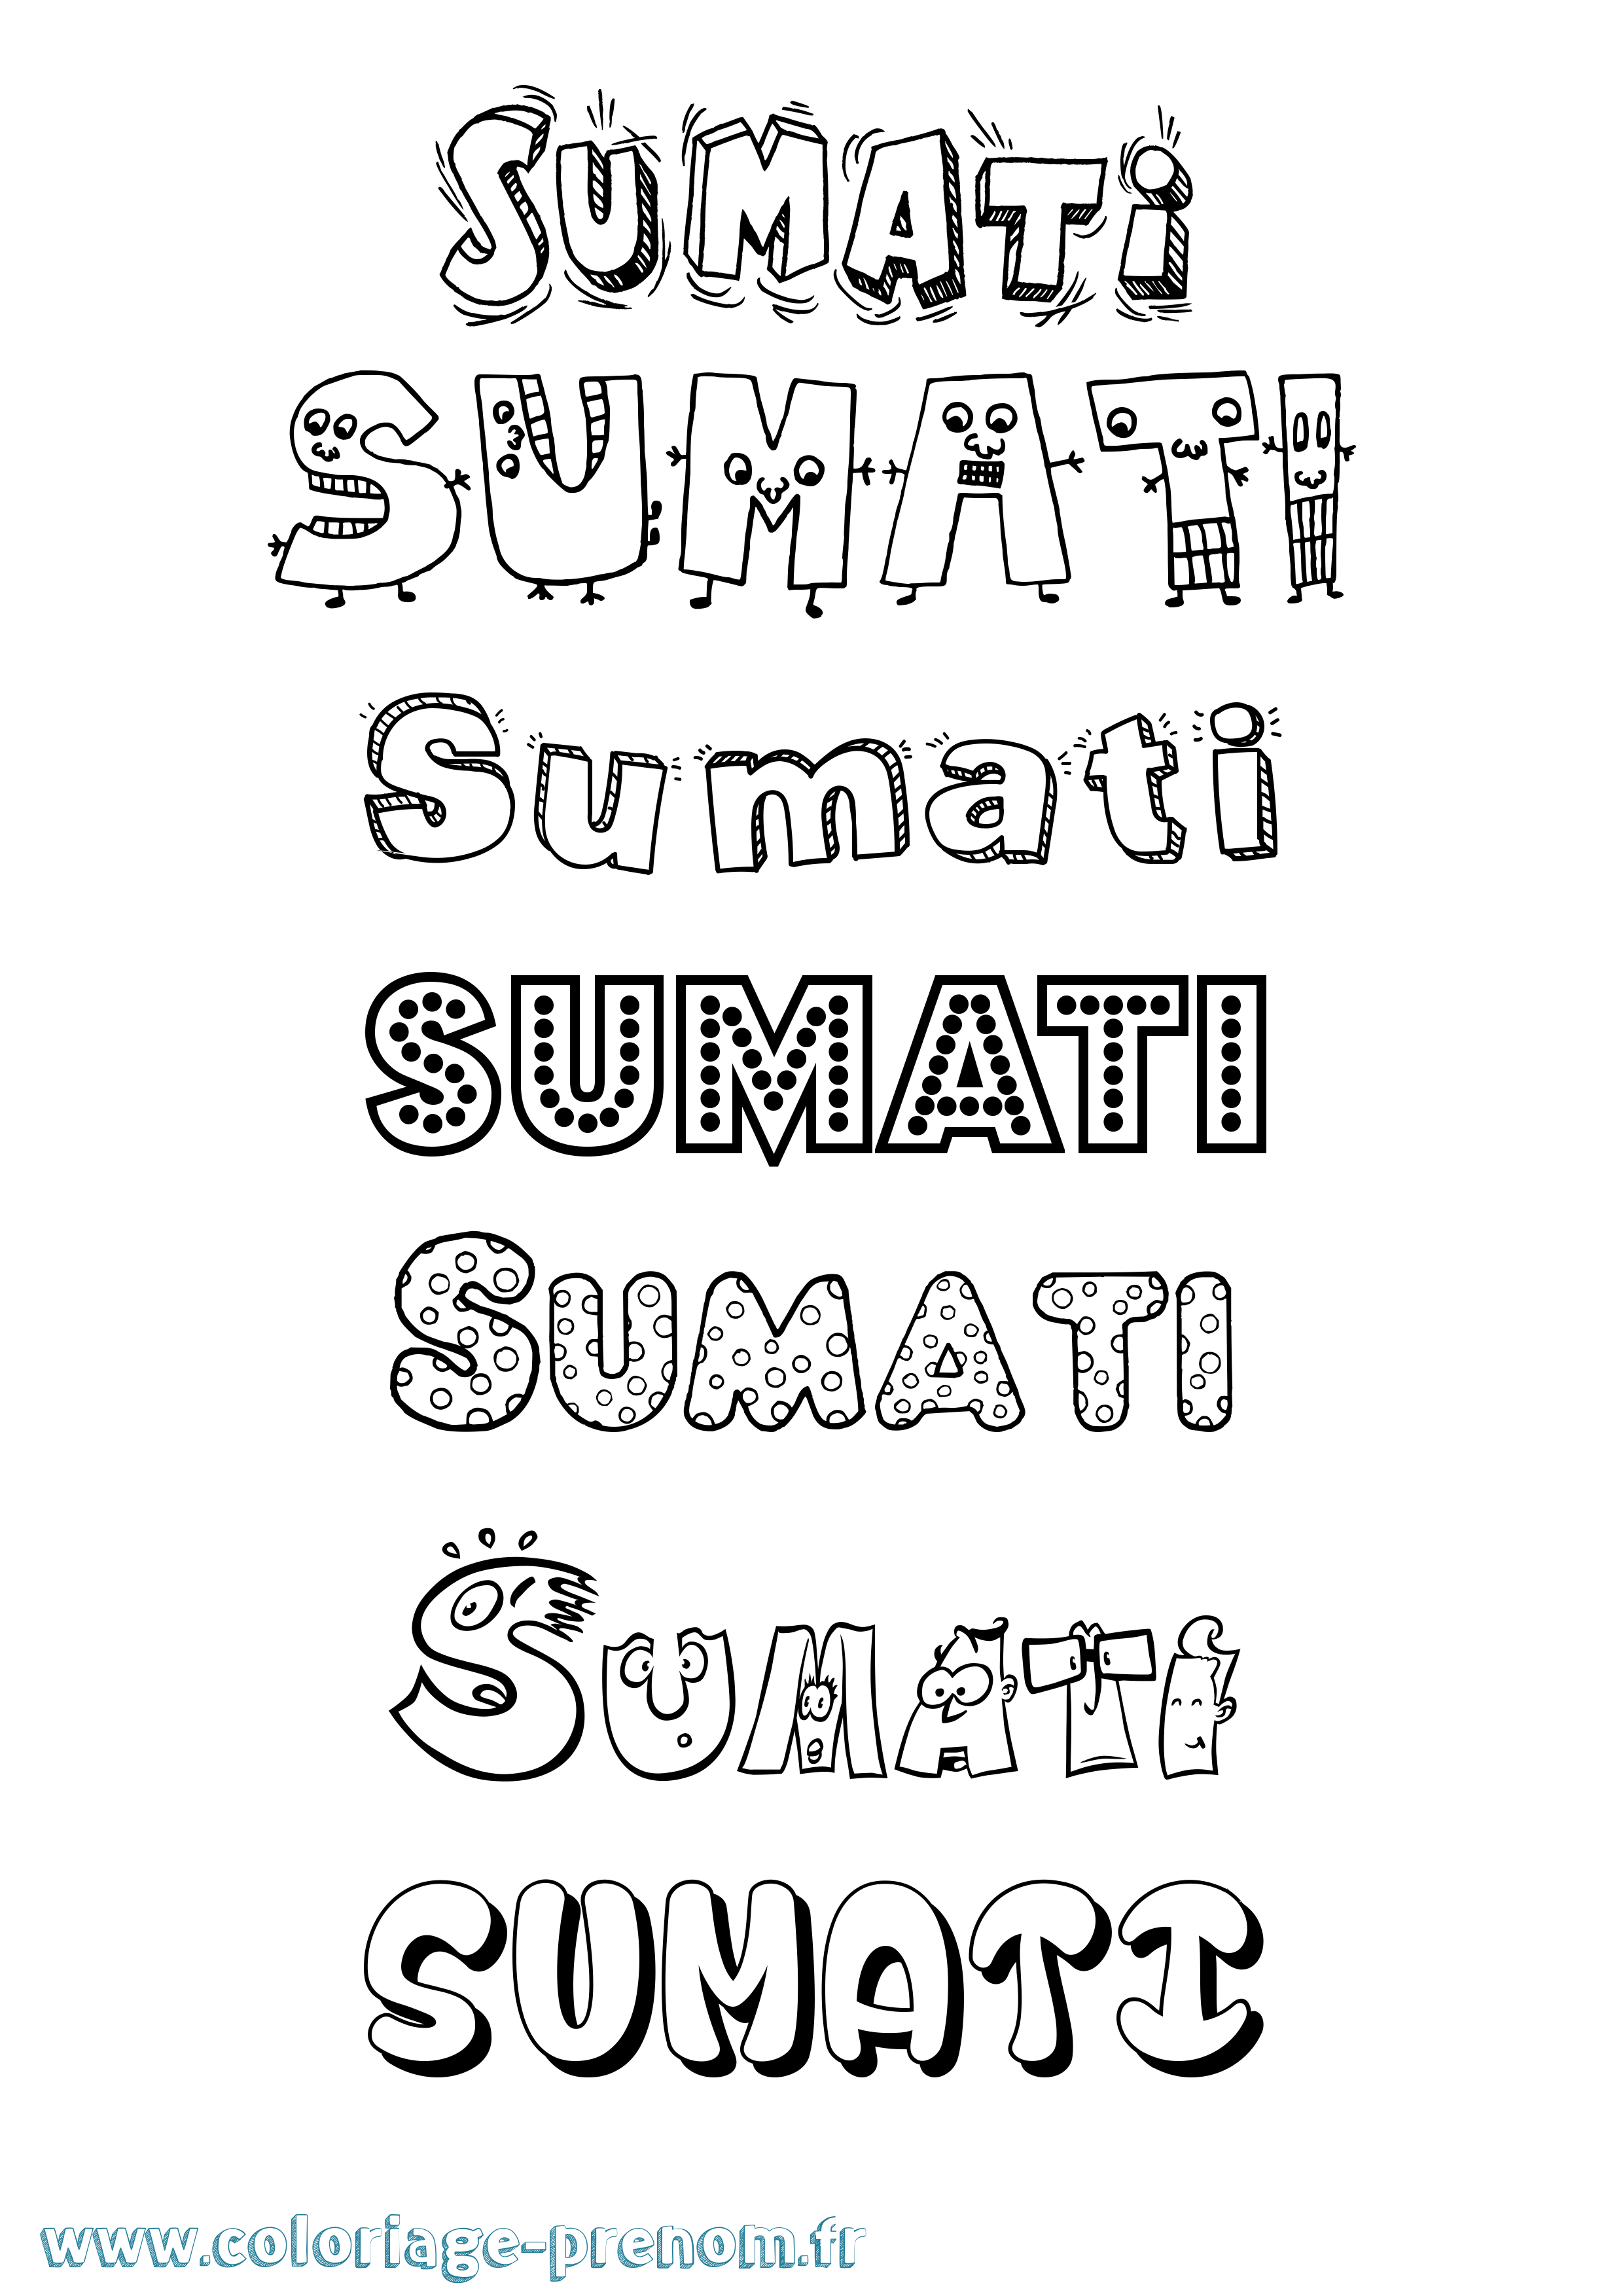 SUMATi
SUMATI
Sumati
SUMATI
SUMATI
SUMATi
SUMATI
www.coloriage-prenom.fr